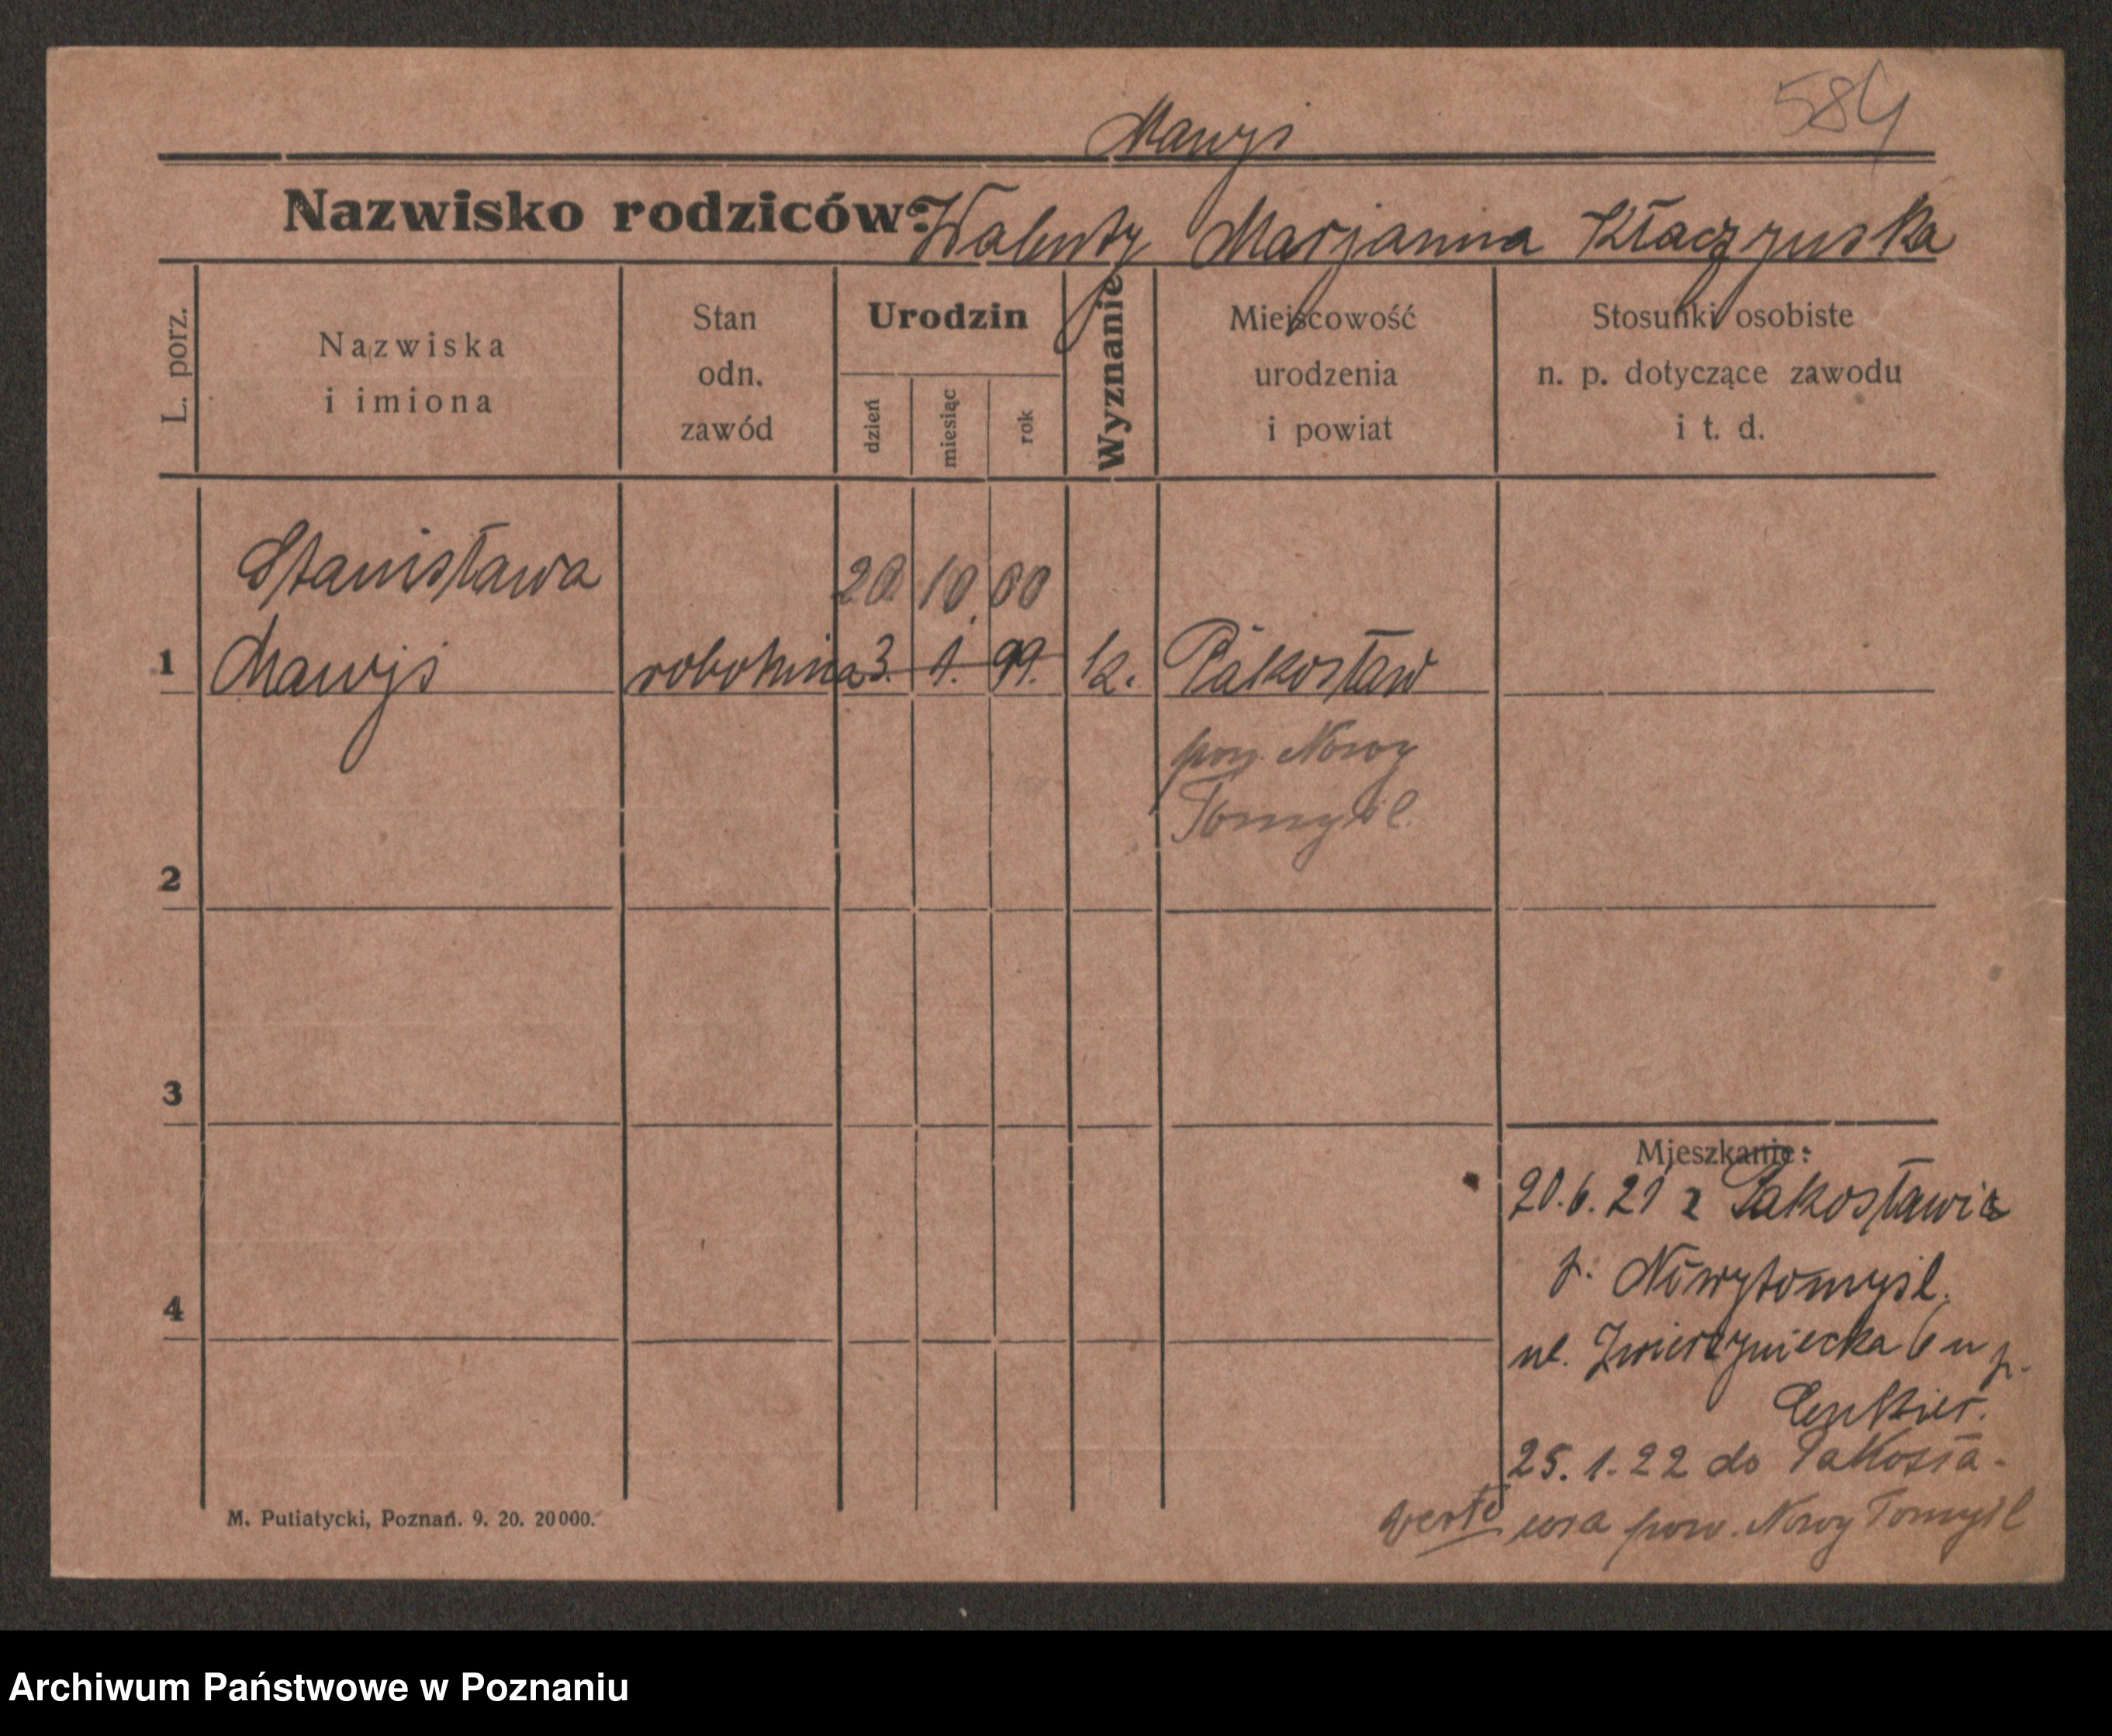 584
Mawji
Nazwisko rodziców: Walenty Marjanna Kłaczyńska
L. porz.
Nazwiska
i imiona
Stan
odn.
zawód
Urodzin
dzień
miesiąc
rok
Wyznanie
Miejscowość
urodzenia
i powiat
Stosunki osobiste
n. p. dotyczące zawodu
i t. d.
Stanisława
20 10. 00
1 Mawji robotnica 3. 1. 99. k. Pakosław
pow. Nowy
Tomyśl.
2
3
4
Mieszkanie:
20.6.21 z Pakosławia
p. Nowytomyśl.
ul. Zwierzyniecka 6 u p.
25.1.22 do Pakosła-
verte wia pow. Nowy Tomyśl
M. Putiatycki, Poznań. 9. 20. 20000.
Archiwum Państwowe w Poznaniu